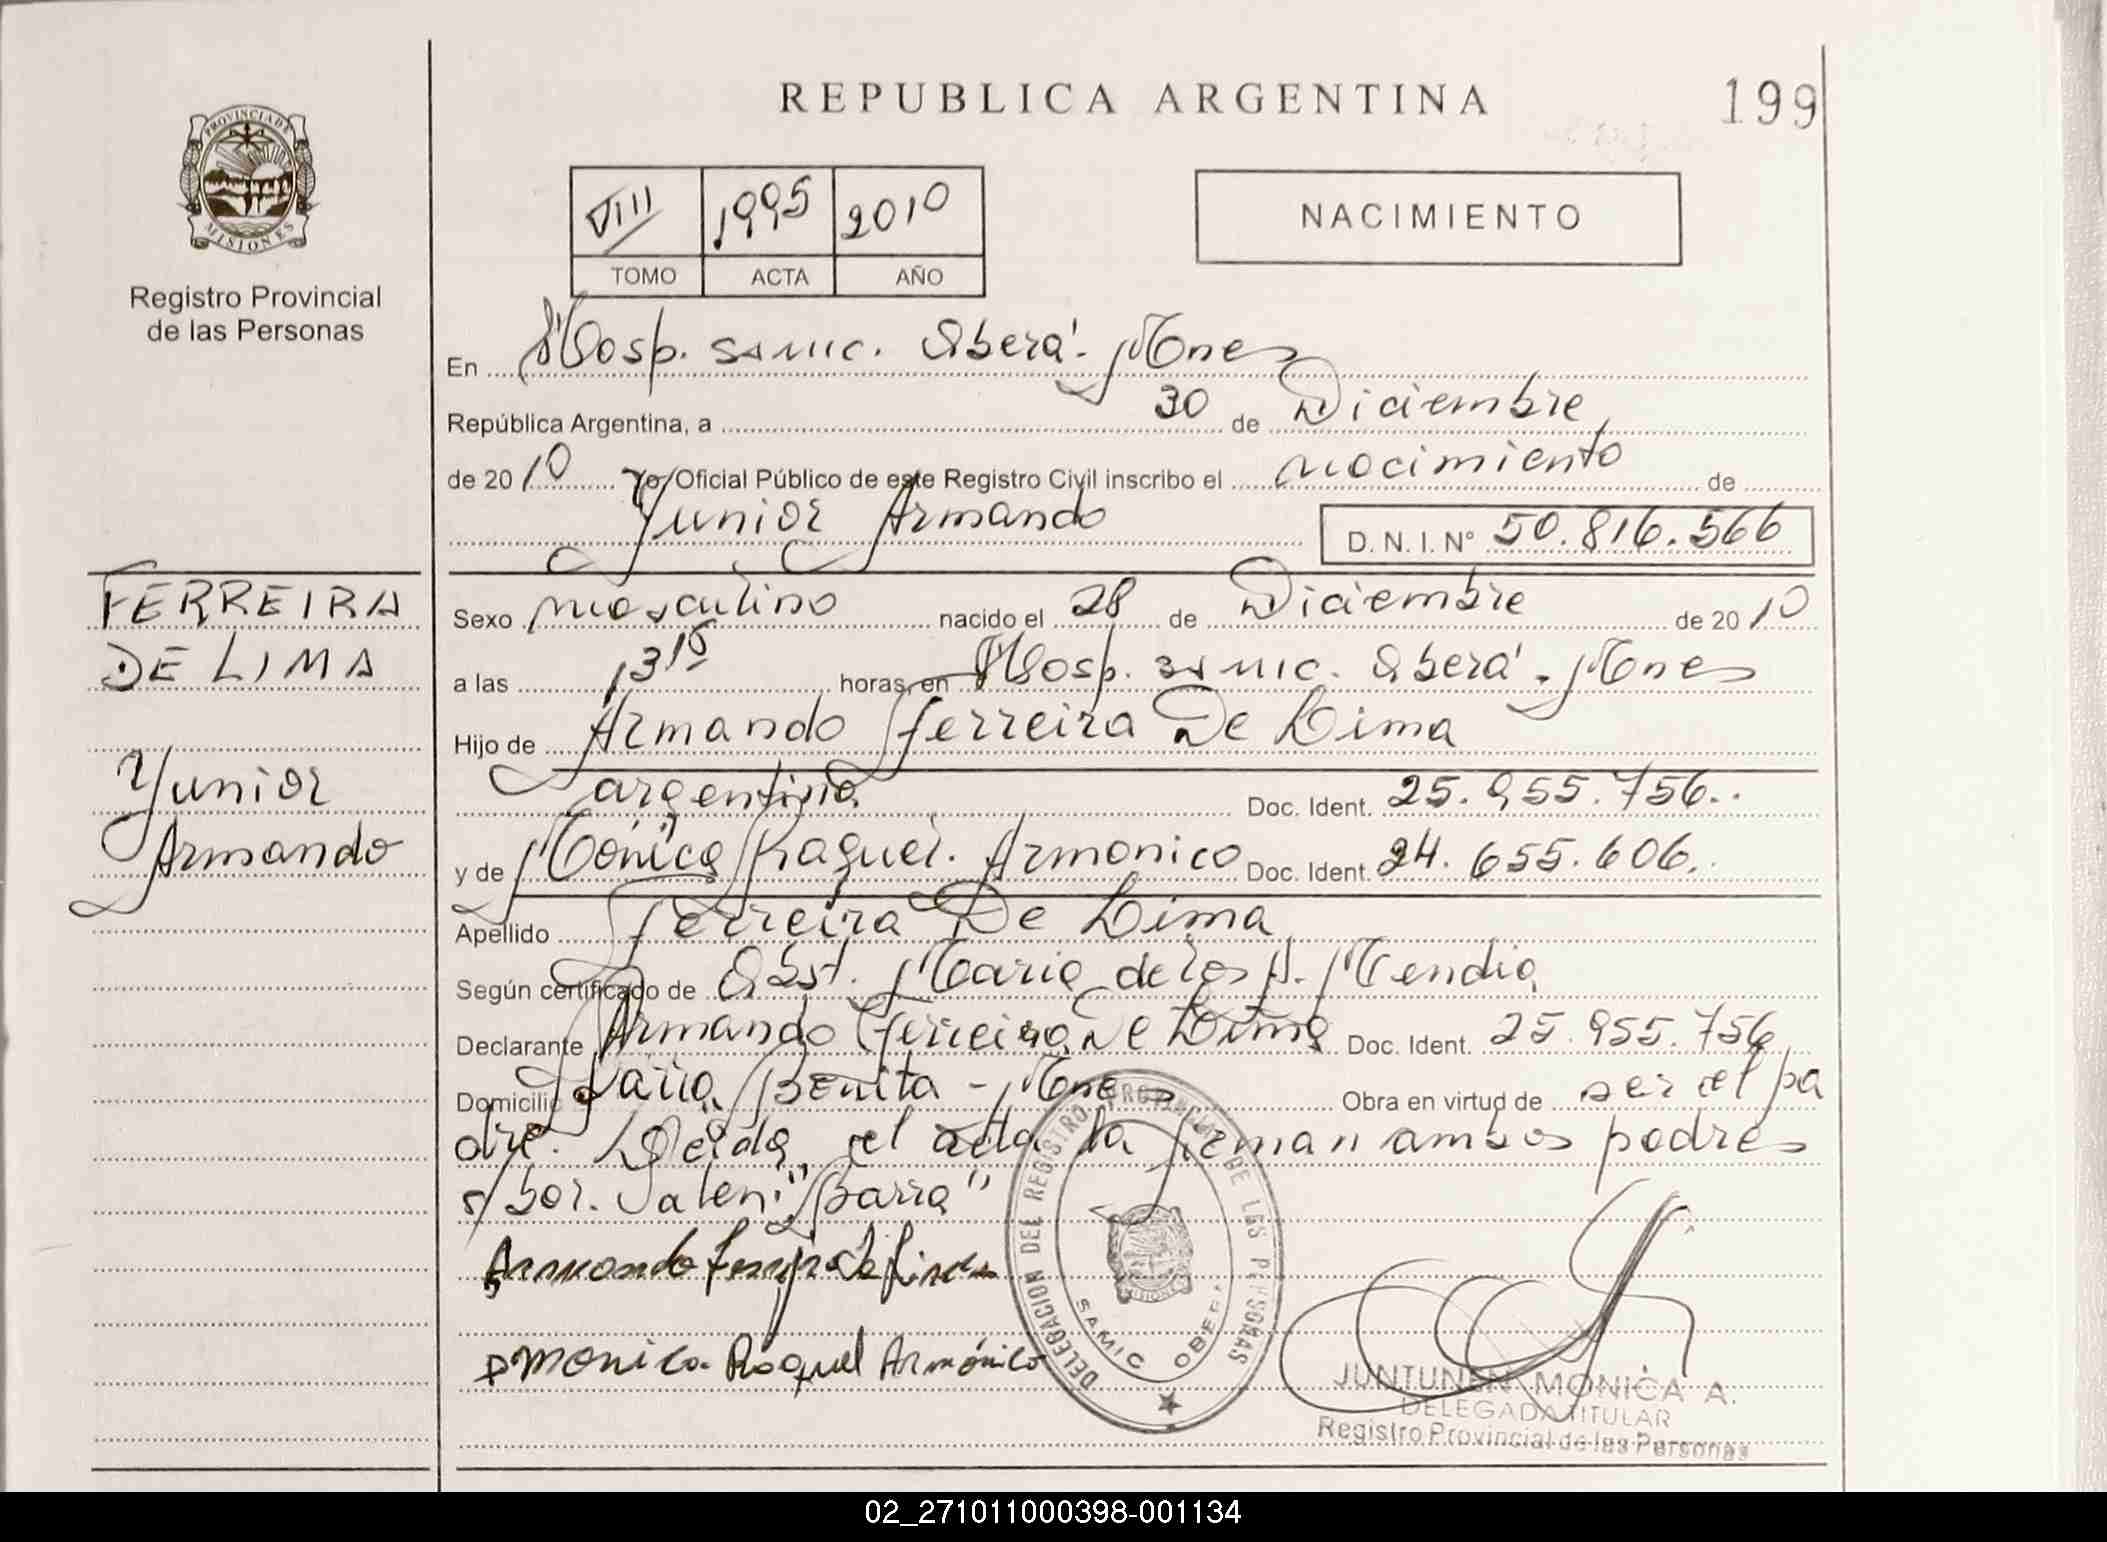 REPUBLICA ARGENTINA
199
PROVINCIA DE
MISIONES
Registro Provincial
de las Personas
VIII 1995 2010
TOMO ACTA AÑO
NACIMIENTO
En Hosp. Samic. Oberá - Mnes
República Argentina, a 30 de Diciembre
de 2010 Yo Oficial Público de este Registro Civil inscribo el nacimiento de
Yunior Armando D. N. I. N° 50.816.566
FERREIRA
DE LIMA
Yunior
Armando
Sexo masculino nacido el 28 de Diciembre de 2010
a las 13 15 horas, en Hosp. Samic. Oberá - Mnes
Hijo de Armando Ferreira De Lima
argentino Doc. Ident. 25.955.756..
y de Mónica Raquel. Armonico Doc. Ident. 24.655.606..
Apellido Ferreira De Lima
Según certificado de Obst. Maria de los A. Mendia
Declarante Armando Ferreira De Lima Doc. Ident. 25.955.756
Domicilio Barra Bonita - Mnes Obra en virtud de ser el pa
dre. Leida el acta la firman ambos padres
s/bor. Valen: "Barra"
Armando Ferreira de Lima
Monica Raquel Armónico
DELEGACION DEL REGISTRO PROVINCIAL DE LAS PERSONAS
SAMIC OBERA
MISIONES
JUNTUNEN MONICA A.
DELEGADA TITULAR
Registro Provincial de las Personas
02_271011000398-001134